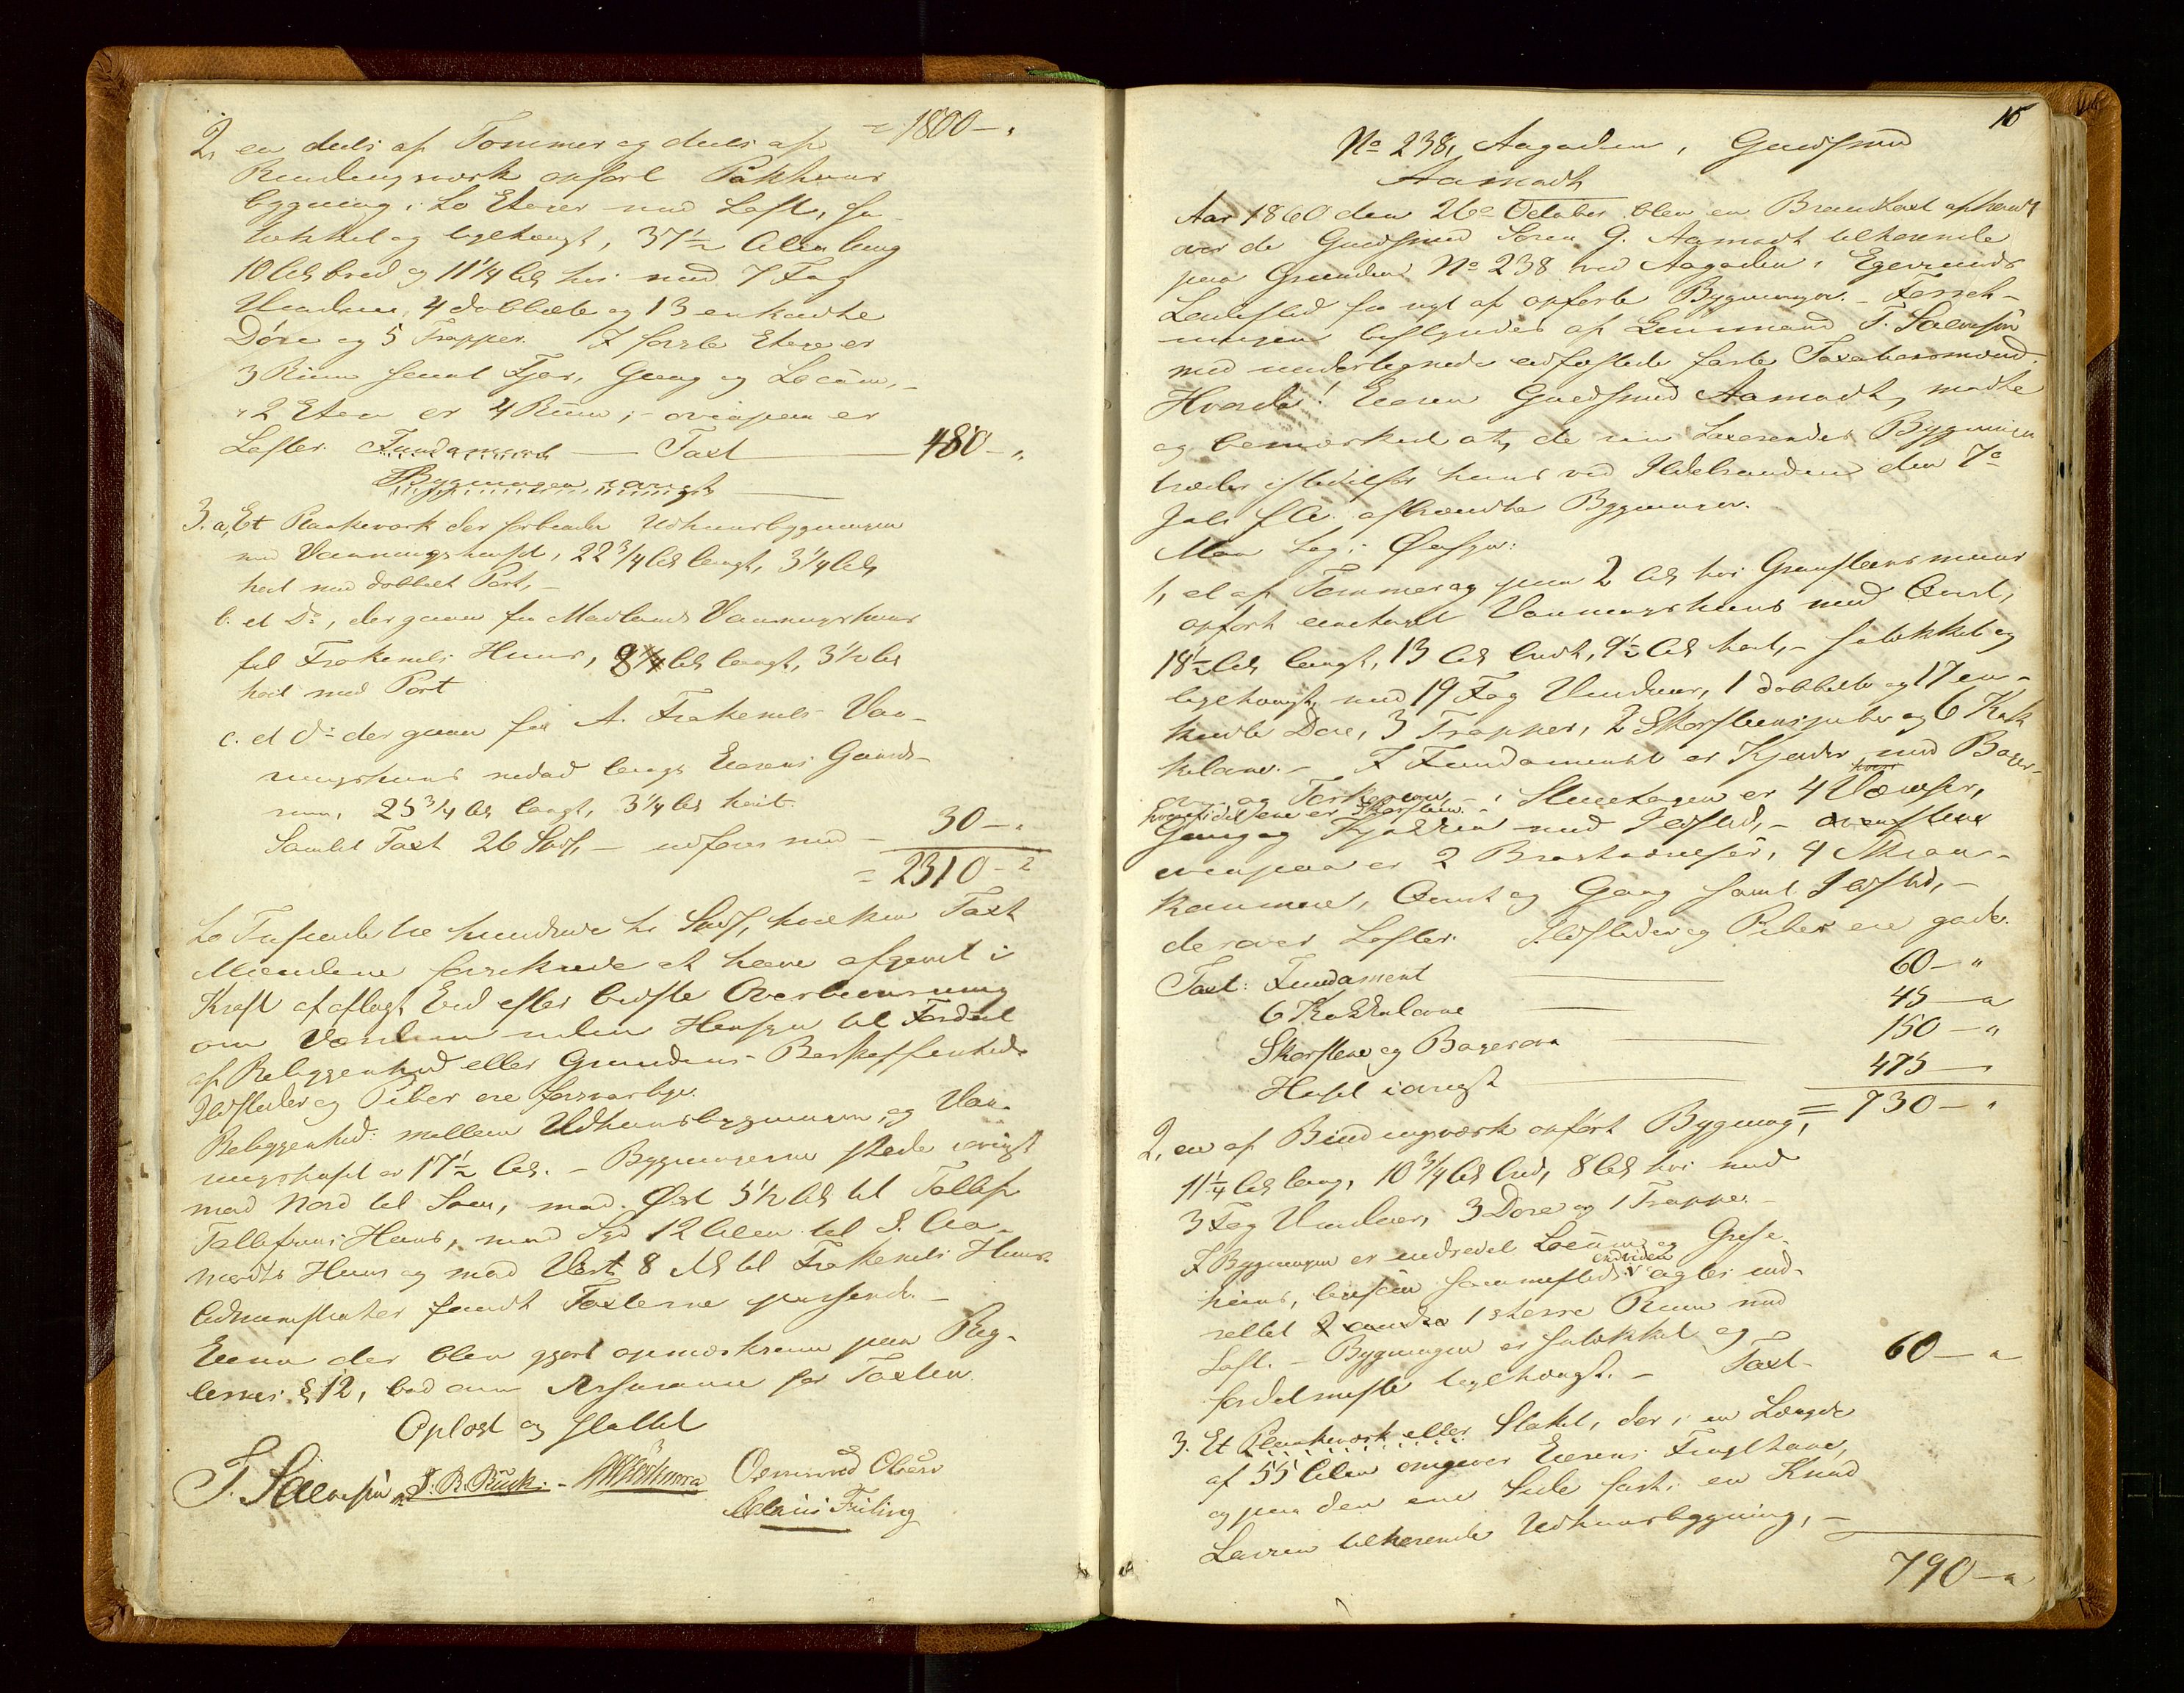 = 1800 – "
2, en deels af Tømmer og deels af
Bindingsværk opført Pakhuus
bygning i to Etager med Loft,
tækket og teglhængt, 37½ Alen lang
10 Al. bred og 11¼ Al. høi med 7 Fag
Vinduer, 4 dobbelte og 13 enkelte
Døre og 5 Trapper. I første Etage er
3 Rum samt Gang og Locum, –
i 2 Etage er 4 Rum; – ovenpaa er
Lofter. Fundament — Taxt — 480 – "
Bygningen iøvrigt —
3. a, Et Plankeværk der forbinder Udhuusbygningen
med Vaaningshuset, 22¾ Al. langt, 3¼ Al.
høit med dobbelt Port, –
b. et Do, der gaaer fra Vaaningshuus
til Huus, Al. langt, 3½ Al.
høit med Port
c. et do der gaaer fra A. Vaa-
ningshuus nedad langs Eierens Gaards-
rum, 25¾ Al. langt, 3¼ Al. høit.
Samlet Taxt 26 Spd, – udføres med – 30 – "
= 2310 – "
to Tusinde tre hundrede ti Spd, hvilken Taxt
Mændene forsikrede at have afgivet i
Kraft af aflagt Eed efter bedste Overbeviisning
om Værdien uden Hensyn til Fordeel
af Beliggenhed eller Grundens Beskaffenhed.
Ildsteder og Piber ere forsvarlige.
Beliggenhed: mellem Udhuusbygningen og Vaa-
ningshuset er 17½ Al. – Bygningerne støde iøvrigt
mod Nord til Søen, mod Øst 5½ Al. til Tollef
Tollefsens Huus, mod Syd 12 Alen til S. Aa-
modts Huus og mod Vest 8 Al. til Huus.
Administrator fandt Taxterne passende. –
Eieren der blev gjort opmærksom paa Reg-
lernes § 12, bad om Assurance for Taxten.
Oplæst og sluttet
T. Salvesen J. B. Busk. – Osmund Olsen
Feiling
15
No 238, Aagaden, Guldsmed
Aamodt
Aar 1860 den 26de October blev en Brandtaxt afholdt
over de Guldsmed Søren G. Aamodt tilhørende
paa Grunden No 238 ved Aagaden i Egersunds
Ladested fra nyt af opførte Bygninger. – Forret-
ningen bestyredes af Lensmand T. Salvesen
med undertegnede edfæstede faste Taxationsmænd.
Hvorda! Eieren Guldsmed Aamodt mødte
og bemærkede at de nu taxerendes Bygninger
træder istedetfor hans ved Ildebranden den 7de
Juli f. A. afbrændte Bygninger.
Man tog i Øiesyn:
1, et af Tømmer og paa 2 Al. høi Graasteensmuur
opført eenetages Vaaningshuus med Qvist,
18½ Al. langt, 13 Al. bredt, 9½ Al. høit, – tækket og
teglhængt, med 19 Fag Vinduer, 1 dobbelte og 17 en-
kelte Døre, 3 Trapper, 2 Skorsteenspiber og 6 Kak
kelovne. – I Fundamentet er Kjelder med Bager-
ovn og – i Stueetagen er 4 Værelser,
Gang og Kjøkken med Ildsted, –
ovenpaa er 2 Qvistværelser, 4
kammere, Qvist og Gang samt Ildsted, –
derover Lofter. Ildsteder og Piber ere gode.
Taxt: Fundament — 60 – "
6 Kakkelovne — 45 – "
Skorstene og Bagerovn — 150 – "
Huset iøvrigt — 475 –
= 730 – "
2, en af Bindingsværk opført Bygning,
11¼ Al. lang, 10¾ Al. bred, 8 Al. høi med
3 Fag Vinduer, 3 Døre og 1 Trappe. –
I Bygningen er indredet Locum og Grise-
huus, sammesteds endviden agtes ind-
rettet 1 større Rum med
Loft. – Bygningen er tækket og
fordetmeste teglhængt. – Taxt – 60 – "
3. Et Plankeværk eller Stakit, der i en Længde
af 55 Alen omgiver Eierens Frugthave,
og paa den ene Side fast i en Knud
tilhørende Udhuusbygning, –
790 – "